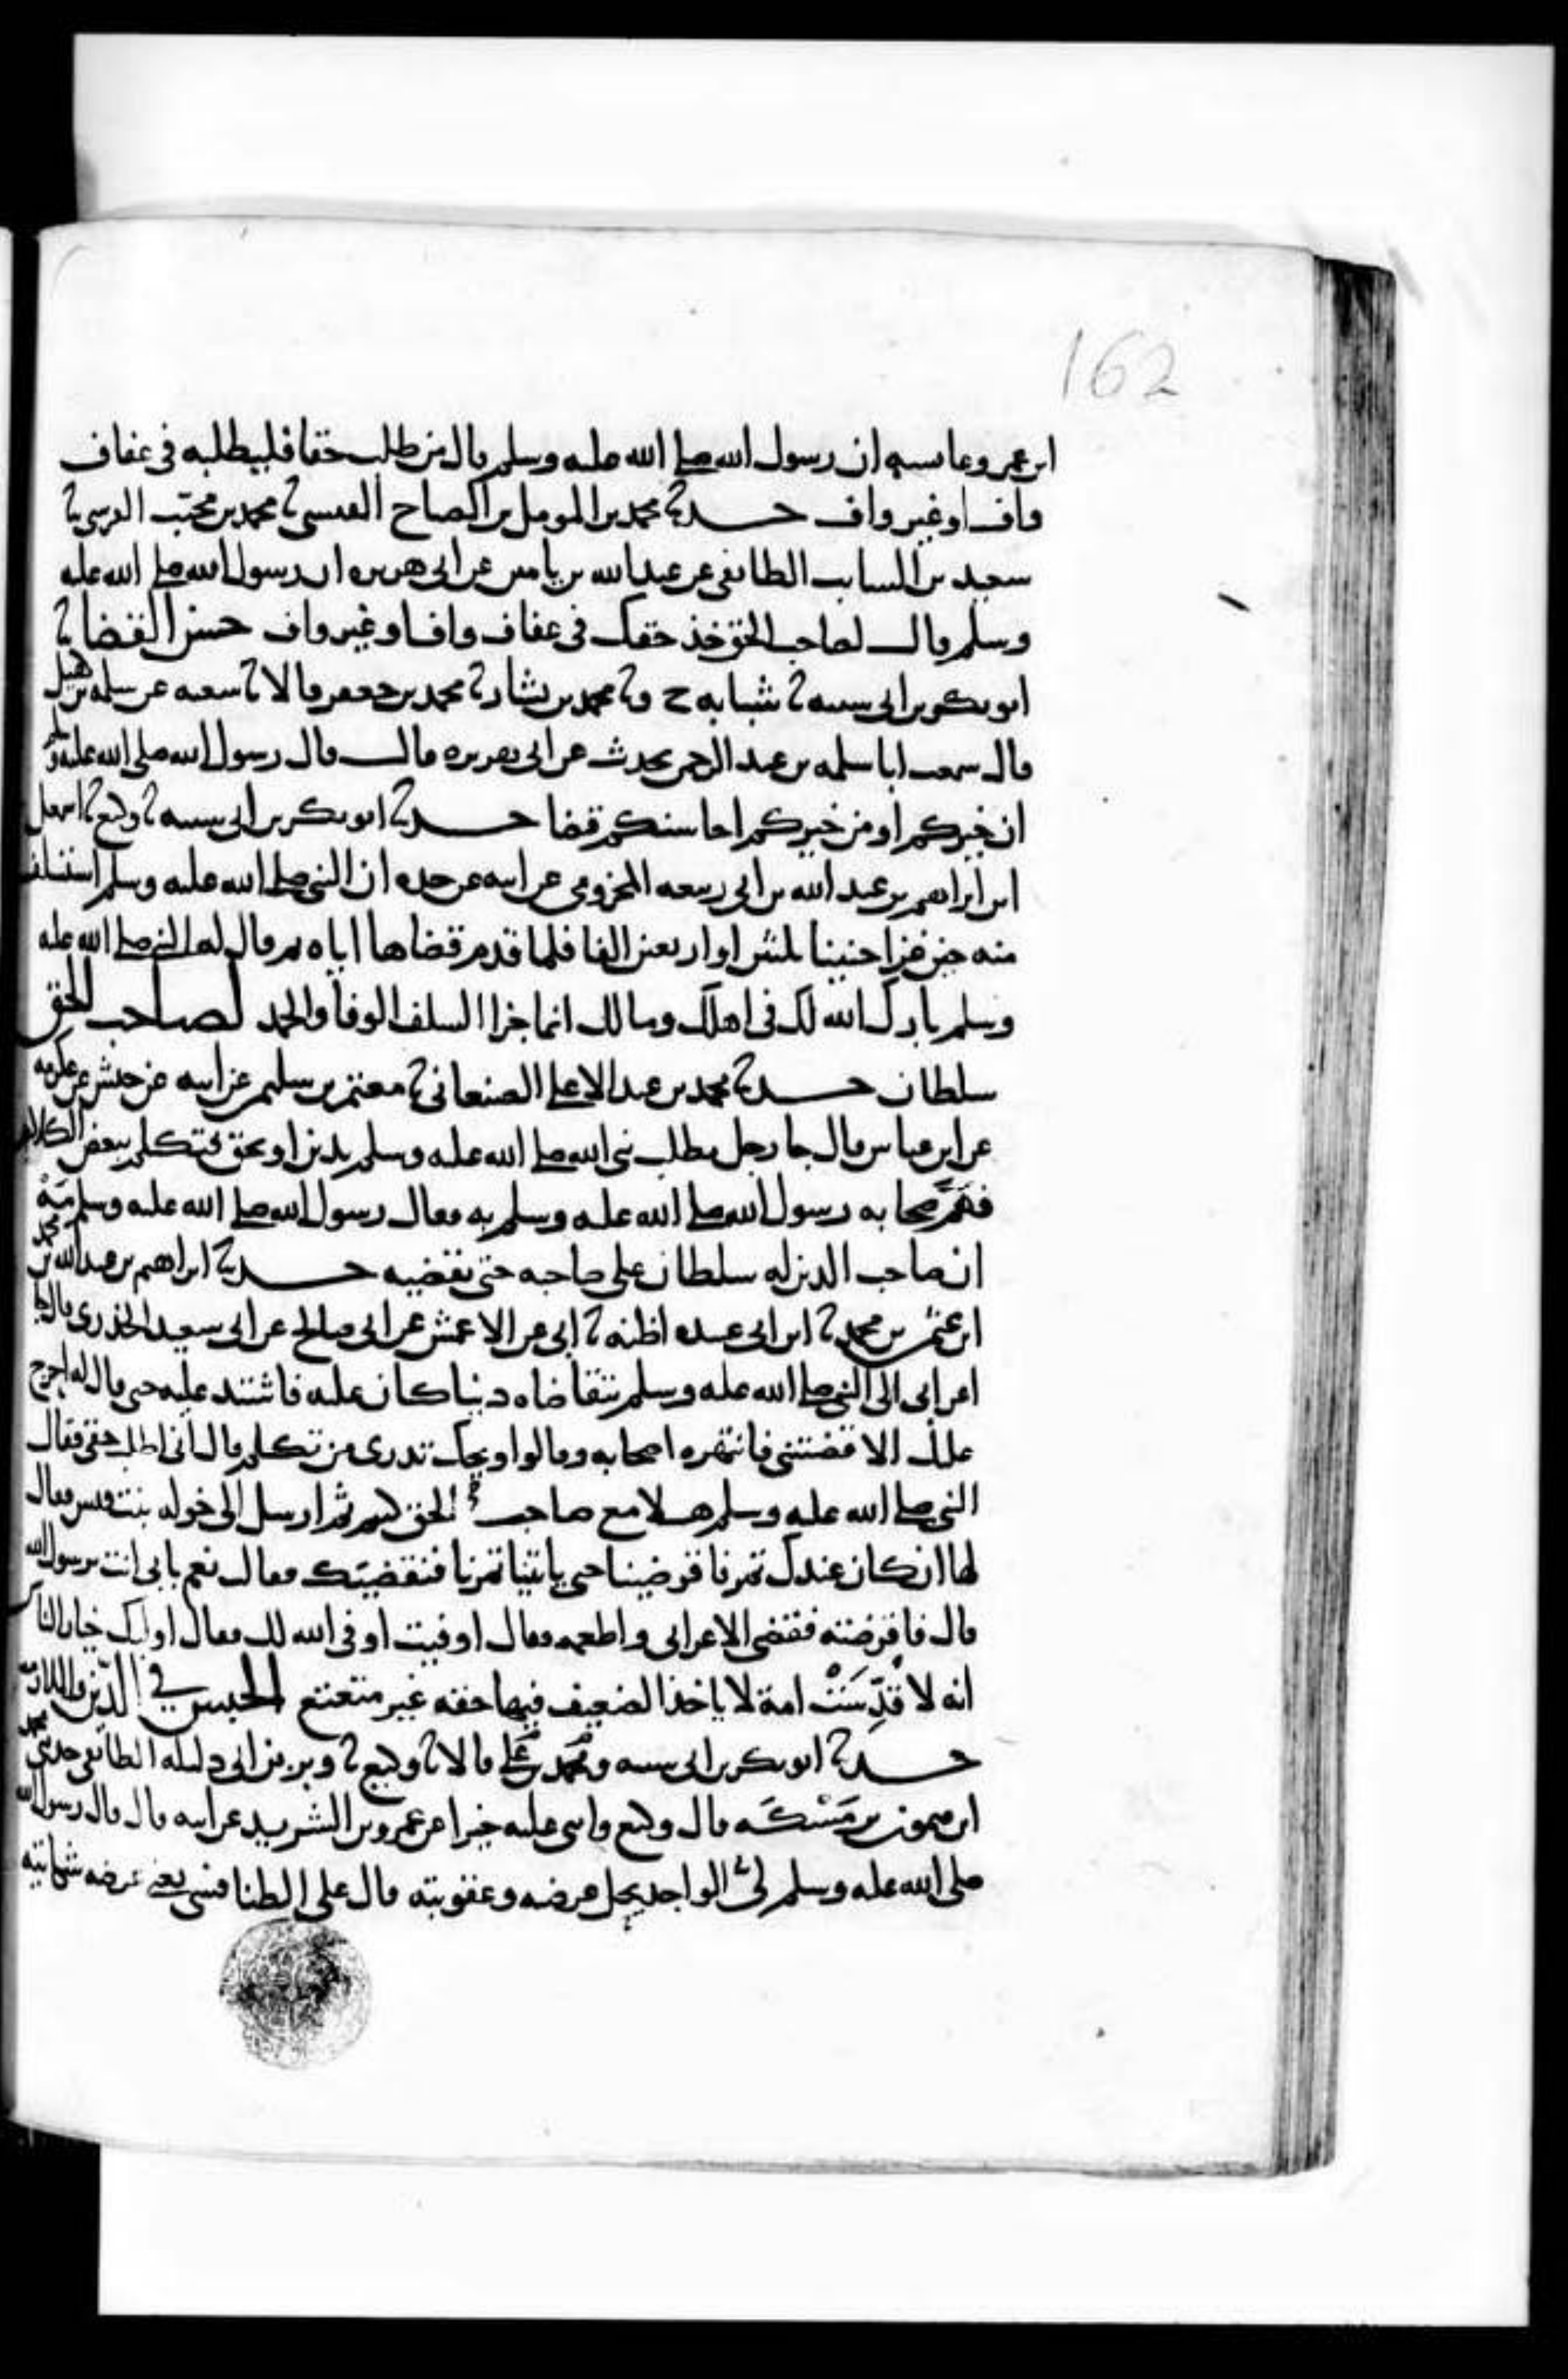 162
ابن عمر وعايشه ان رسول الله صلى الله عليه وسلم قال من طلب حقا فليطلبه في عفاف
واف او غير واف حدثنا محمد بن المومل بن الصباح القيسي ثنا محمد بن محبب القرشي ثنا
سعيد بن السايب الطايفي عن عبد الله بن يامين عن ابي هريره ان رسول الله صلى الله عليه
وسلم قال لصاحب الحق خذ حقك في عفاف واف او غير واف حسن القضا ثنا
ابو بكر بن ابي شيبه ثنا شبابه ح وثنا محمد بن بشار ثنا محمد بن جعفر قالا ثنا شعبه عن سلمه بن كهيل
قال سمعت ابا سلمه بن عبد الرحمن يحدث عن ابي هريره قال قال رسول الله صلى الله عليه وسلم
ان خيركم او من خيركم احاسنكم قضا حدثنا ابو بكر بن ابي شيبه ثنا وكيع ثنا اسمعيل
ابن ابراهيم بن عبد الله بن ابي ربيعه المخزومي عن ابيه عن جده ان النبي صلى الله عليه وسلم استسلف
منه حين غزا حنينا ثلثين او اربعين الفا فلما قدم قضاها اياه ثم قال له النبي صلى الله عليه
وسلم بارك الله لك في اهلك ومالك انما جزا السلف الوفا والحمد لصاحب الحق
سلطان حدثنا محمد بن عبد الاعلى الصنعاني ثنا معتمر بن سليمن عن ابيه عن حنش عن عكرمه
عن ابن عباس قال جا رجل يطلب نبي الله صلى الله عليه وسلم بدين او بحق فتكلم ببعض الكلام
فهم صحابه رسول الله صلى الله عليه وسلم به فقال رسول الله صلى الله عليه وسلم مه
ان صاحب الدين له سلطان على صاحبه حتى يقضيه حدثنا ابراهيم بن عبد الله بن محمد
ابن عثمن بن محمد ثنا ابن ابي عبيده اظنه ثنا ابي عن الاعمش عن ابي صالح عن ابي سعيد الخدري قال جا
اعرابي الى النبي صلى الله عليه وسلم يتقاضاه دينا كان عليه فاشتد عليه حتى قال له احرج
عليك الا قضيتني فانتهره اصحابه وقالوا ويحك تدري من تكلم قال اني اطلب حقي فقال
النبي صلى الله عليه وسلم هلا مع صاحب الحق كنتم ثم ارسل الى خوله بنت قيس فقال
لها ان كان عندك تمر فاقرضينا حتى ياتينا تمرنا فنقضيك فقالت نعم بابي انت يرسول الله
قال فاقرضته فقضى الاعرابي واطعمه فقال اوفيت اوفى الله لك فقال اوليك خيار الناس
انه لا قدست امة لا ياخذ الضعيف فيها حقه غير متعتع الحبس في الدين والملازمه
حدثنا ابو بكر بن ابي شيبه ومحمد بن علي قالا ثنا وكيع ثنا وبر بن ابي دليله الطايفي حدثني محمد
ابن ميمون بن مسيكه قال وكيع واثنى عليه خيرا عن عمرو بن الشريد عن ابيه قال قال رسول الله
صلى الله عليه وسلم لي الواجد يحل عرضه وعقوبته قال علي الطنافسي يعني عرضه شكايته